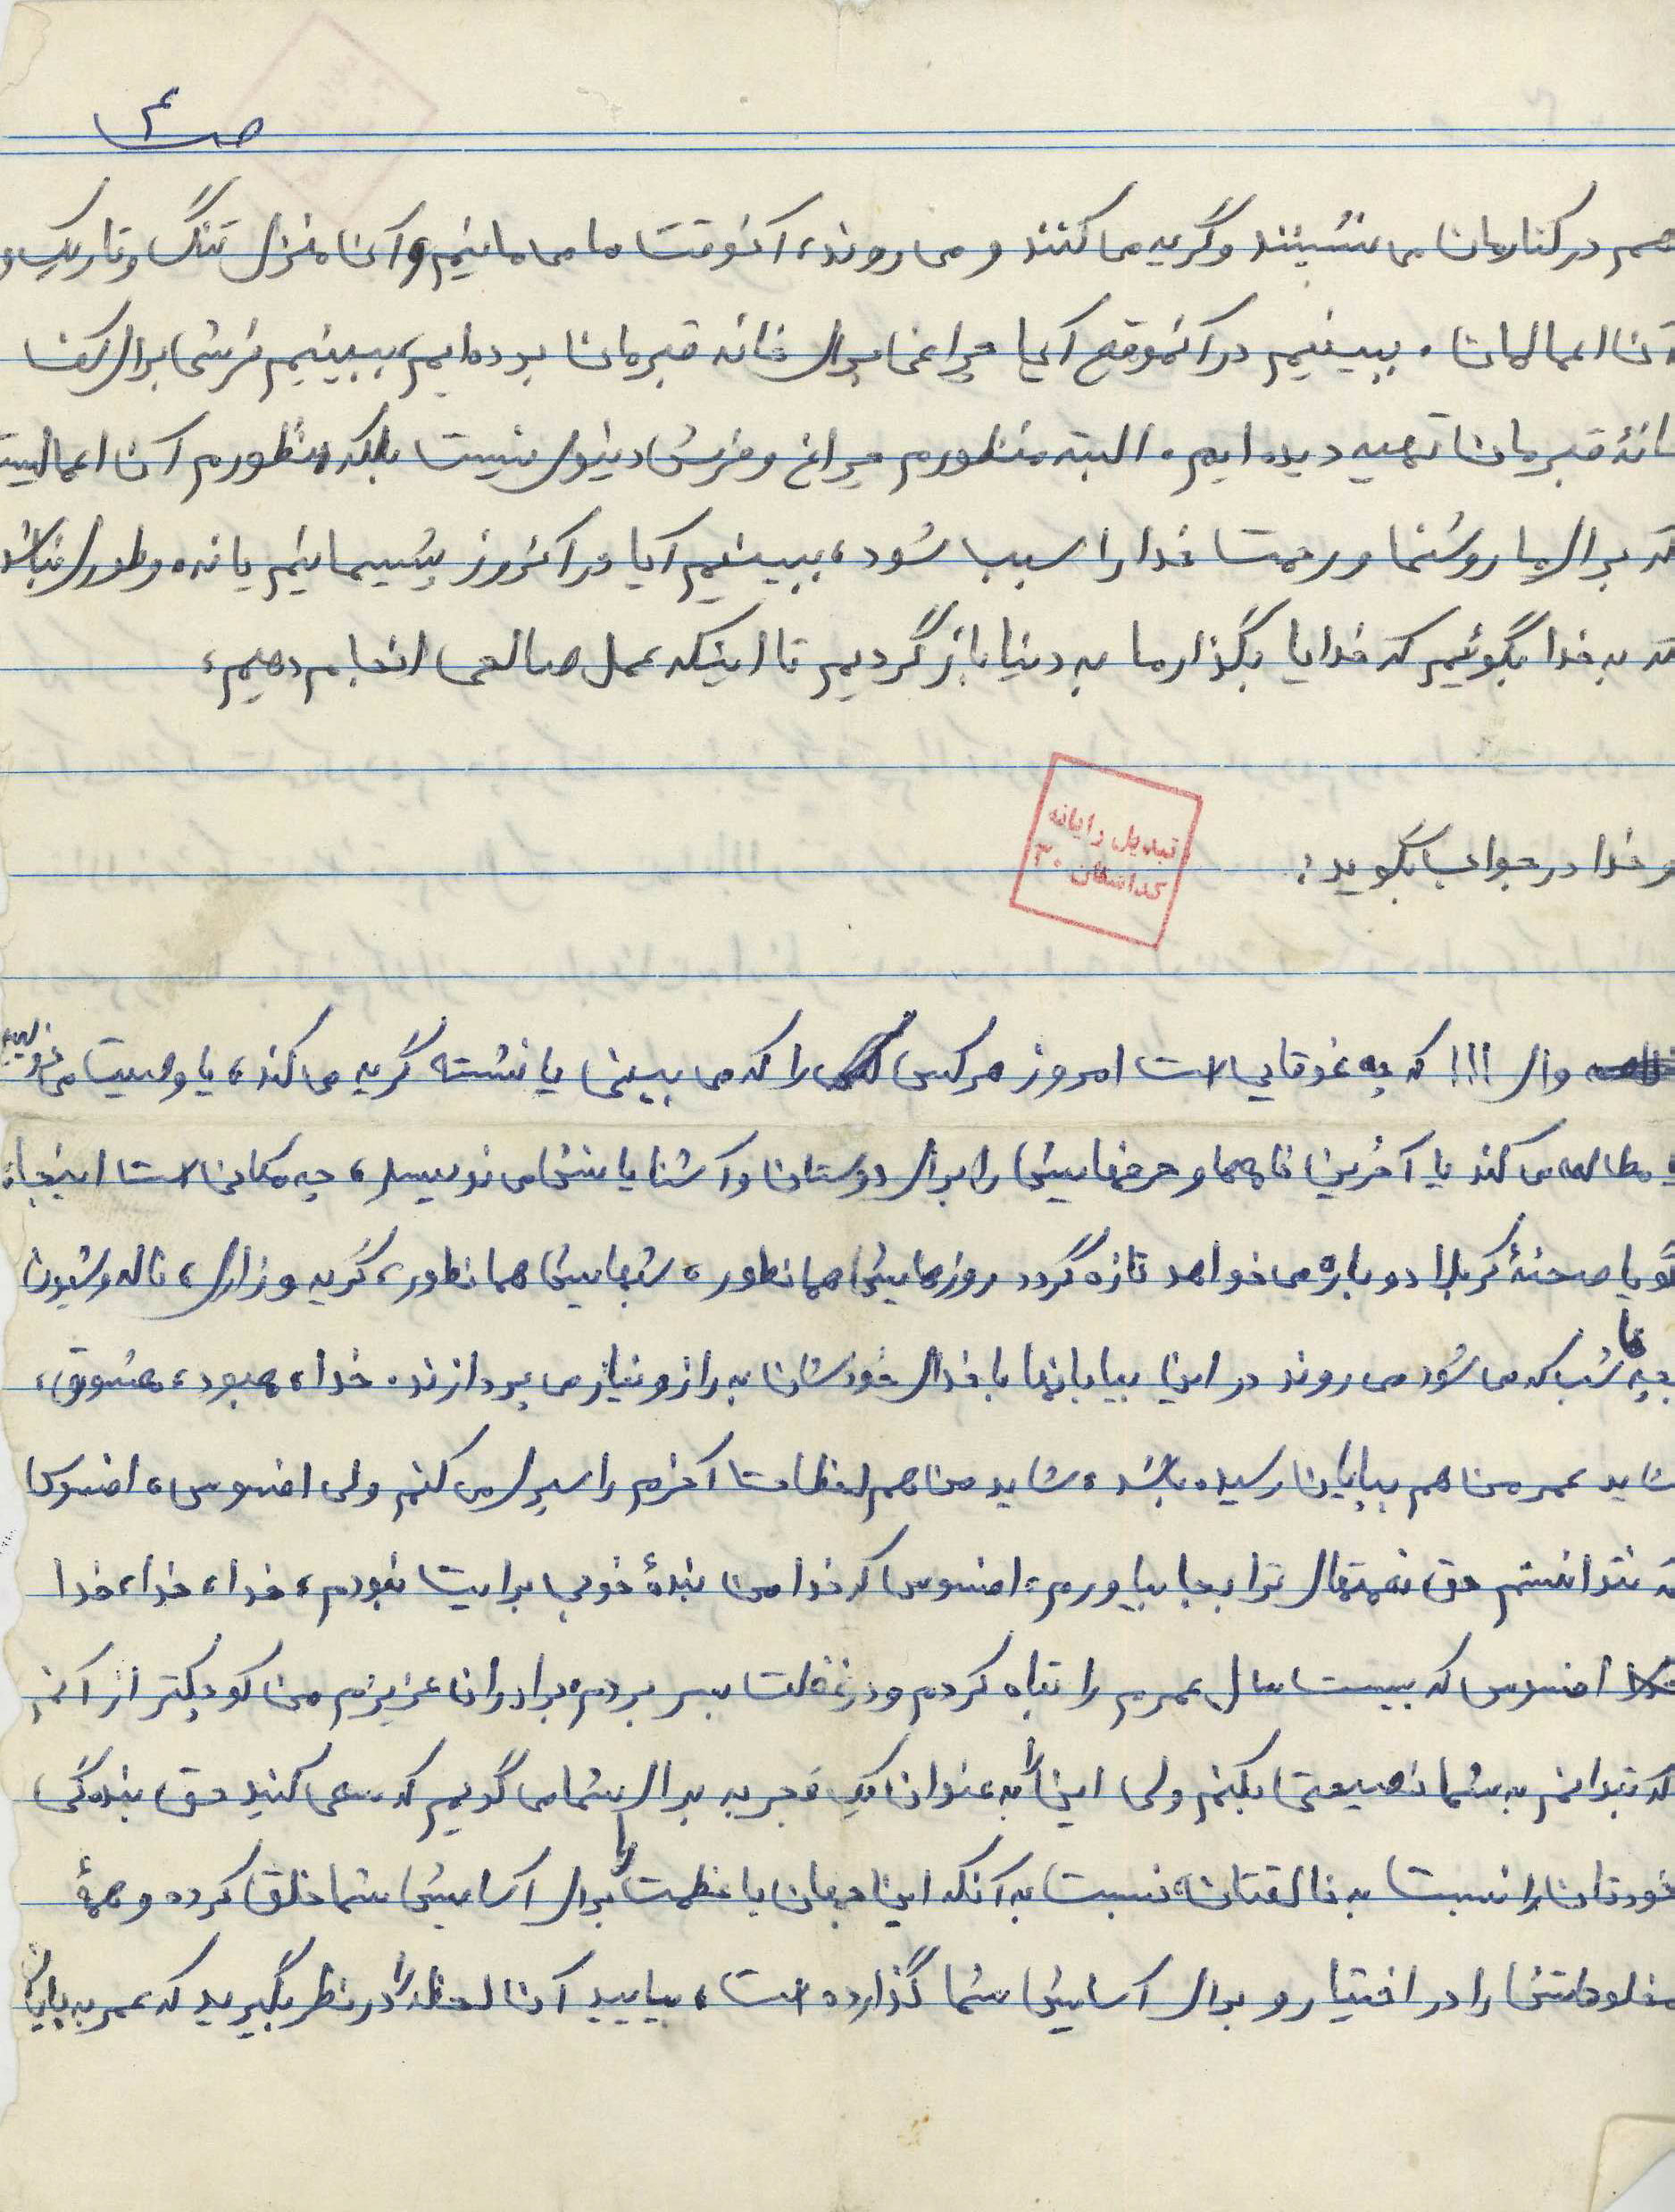 ص ۴
هم در کنارمان می نشینند و گریه می کنند و می روند، آنوقت ما می مانیم و آن منزل تنگ و تاریک و
آن اعمالمان . ببینیم در آنموقع آیا چراغی برای خانه قبرمان برده‌ایم، ببینیم فرشی برای کف
خانهٔ قبرمان تهیه دیده ایم . البته منظورم چراغ و فرش دنیوی نیست بلکه منظورم آن اعمالیست
که برای ما روشنی و رحمت خدا را سبب شود، ببینیم آیا در آنروز پشیمانیم یا نه، و طوری نباشد
که به خدا بگوئیم که خدایا بگذار ما به دنیا بازگردیم تا اینکه عمل صالحی انجام دهیم،
و خدا در جواب بگوید :
تبدیل رایانه
کد اسکن ۳۰
وای !!! که چه غوغایی است امروز هر کسی را که می بینی یا نشسته گریه می کند، یا وصیت می نویسد
یا مطالعه می کند یا آخرین نامه‌ها و حرفهایش را برای دوستان و آشنایانش می نویسد، چه مکانی است اینجا،
گویا صحنهٔ کربلا دوباره می خواهد تازه گردد روزهایش همانطور، شبهایش همانطور، گریه و زاری، ناله و شیون
بچه ها شب که می شود می روند در این بیابانها با خدای خودشان به راز و نیاز می پردازند. خدا، معبود، معشوق،
شاید عمر من هم بپایان رسیده باشد، شاید من هم لحظات آخرم را سپری می کنم ولی افسوس، افسوس
که نتوانستم حق نعمتهای ترا بجا بیاورم، افسوس که خدا من بندهٔ خوبی برایت نبودم، خدا، خدا، خدا
افسوس که بیست سال عمرم را تباه کردم و در غفلت بسر بردم، برادران عزیزم من کوچکتر از آنم
که بتوانم به شما نصیحتی بکنم ولی این را به عنوان یک تجربه برای شما می گویم که سعی کنید حق بندگی
خودتان را نسبت به خالقتان، نسبت به آنکه این جهان با عظمت را برای آسایش شما خلق کرده و همهٔ
مخلوقاتش را در اختیار و برای آسایش شما گذارده است، بیایید آن لحظه را در نظر بگیرید که عمر به پایان